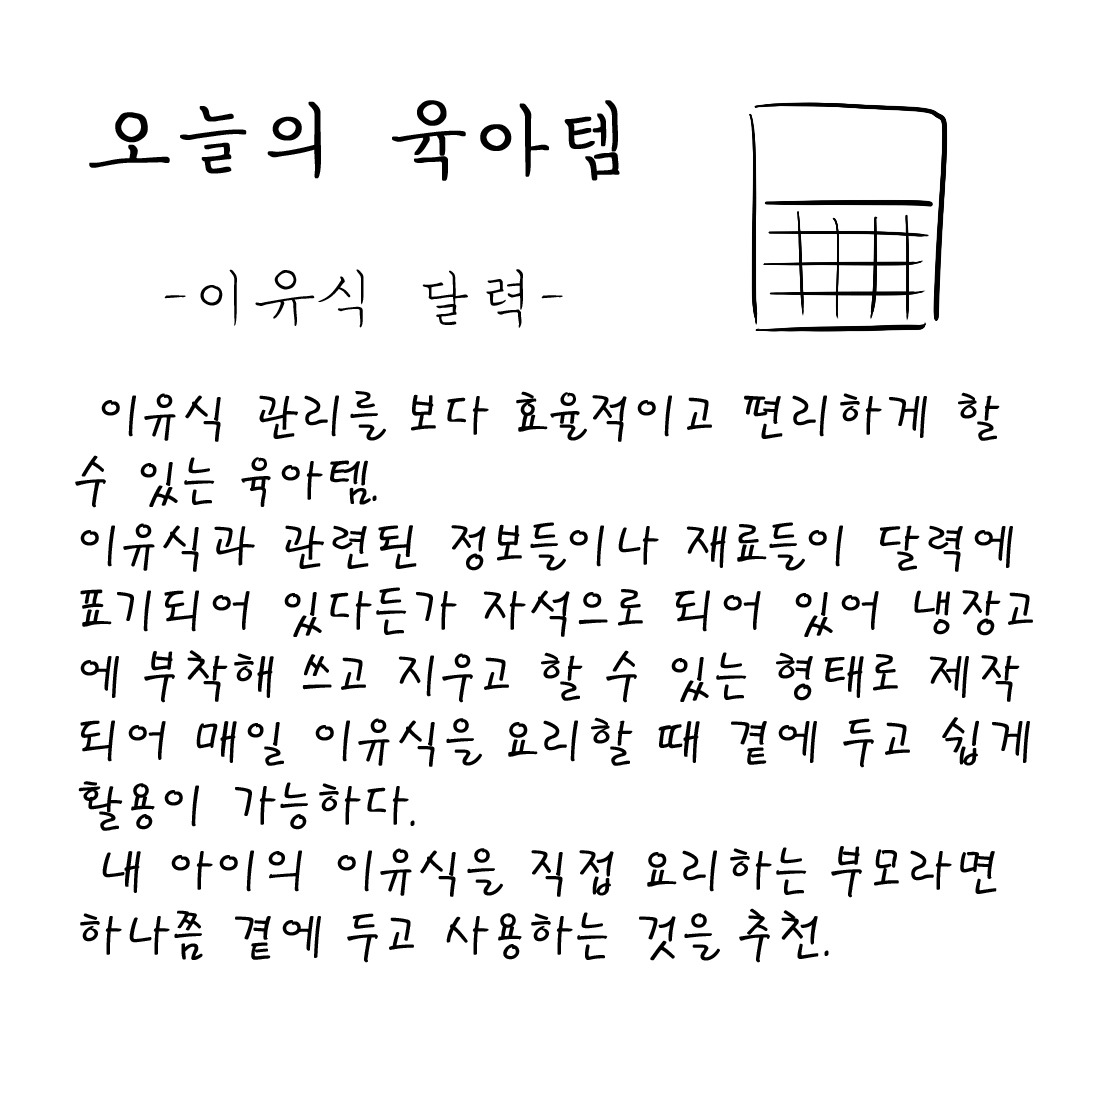 오늘의 육아템
-이유식 달력-
이유식 관리를 보다 효율적이고 편리하게 할
수 있는 육아템.
이유식과 관련된 정보들이나 재료들이 달력에
표기되어 있다든가 자석으로 되어 있어 냉장고
에 부착해 쓰고 지우고 할 수 있는 형태로 제작
되어 매일 이유식을 요리할 때 곁에 두고 쉽게
활용이 가능하다.
내 아이의 이유식을 직접 요리하는 부모라면
하나쯤 곁에 두고 사용하는 것을 추천.